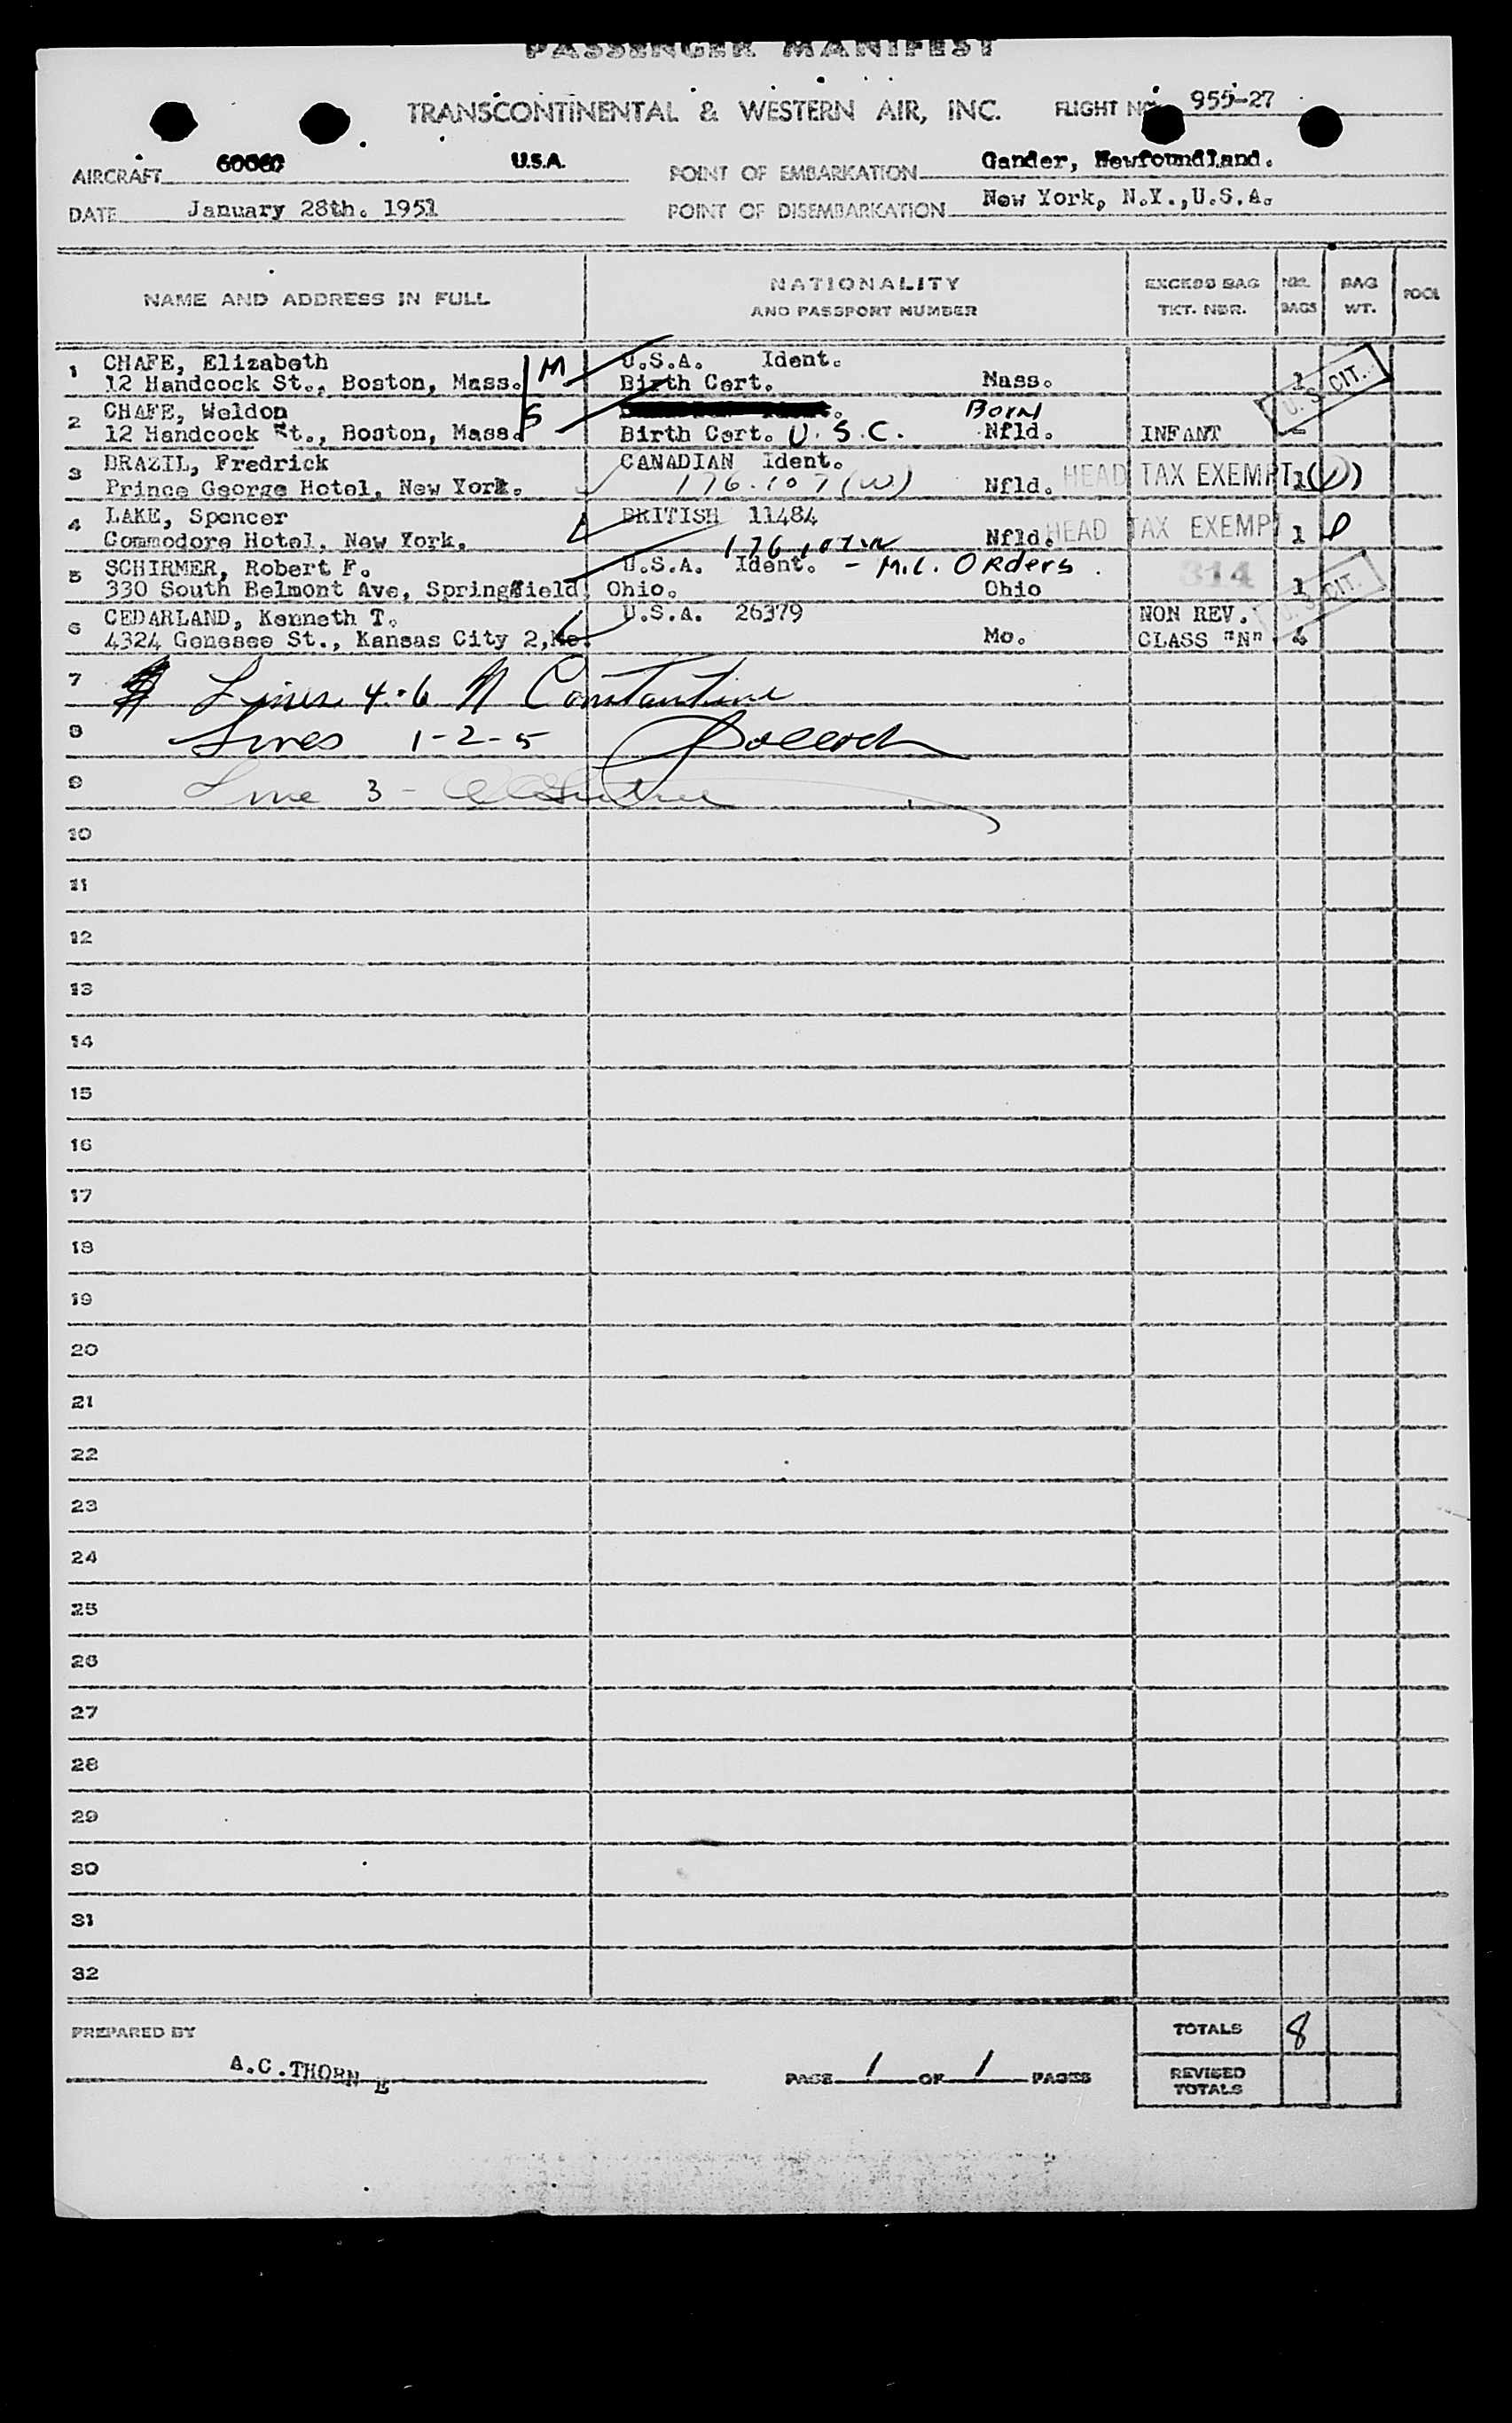 PASSENGER MANIFEST
TRANSCONTINENTAL & WESTERN AIR, INC. FLIGHT NO. 955-27
AIRCRAFT 60060 U.S.A. POINT OF EMBARKATION Gander, Newfoundland.
DATE January 28th. 1951 POINT OF DISEMBARKATION New York, N.Y.,U.S.A.
NAME AND ADDRESS IN FULL NATIONALITY AND PASSPORT NUMBER EXCESS BAG TKT. NBR. NBR. BAGS BAG WT. POOL
1 CHAFE, Elizabeth M U.S.A. Ident.
12 Handcock St., Boston, Mass. Birth Cert. Mass. 1 U. S. CIT.
2 CHAFE, Weldon S Born
12 Handcock St., Boston, Mass. Birth Cert. U.S.C. Nfld. INFANT -
3 BRAZIL, Fredrick CANADIAN Ident.
Prince George Hotel, New York. 176.107(W) Nfld. HEAD TAX EXEMPT 1
4 LAKE, Spencer BRITISH 11484
Commodore Hotel, New York. 176.107 Nfld. HEAD TAX EXEMPT 1
5 SCHIRMER, Robert F. U.S.A. Ident. - M.L. Orders
330 South Belmont Ave, Springfield, Ohio. Ohio 314 1 U. S. CIT.
6 CEDARLAND, Kenneth T. U.S.A. 26379 NON REV.
4324 Genesee St., Kansas City 2, Mo. Mo. CLASS "N" 4
7 Lines 4-6 N Constantine
8 Lines 1-2-5
9 Line 3 -
10
11
12
13
14
15
16
17
18
19
20
21
22
23
24
25
26
27
28
29
30
31
32
PREPARED BY TOTALS 8
A.C.THORNE PAGE 1 OF 1 PAGES REVISED TOTALS